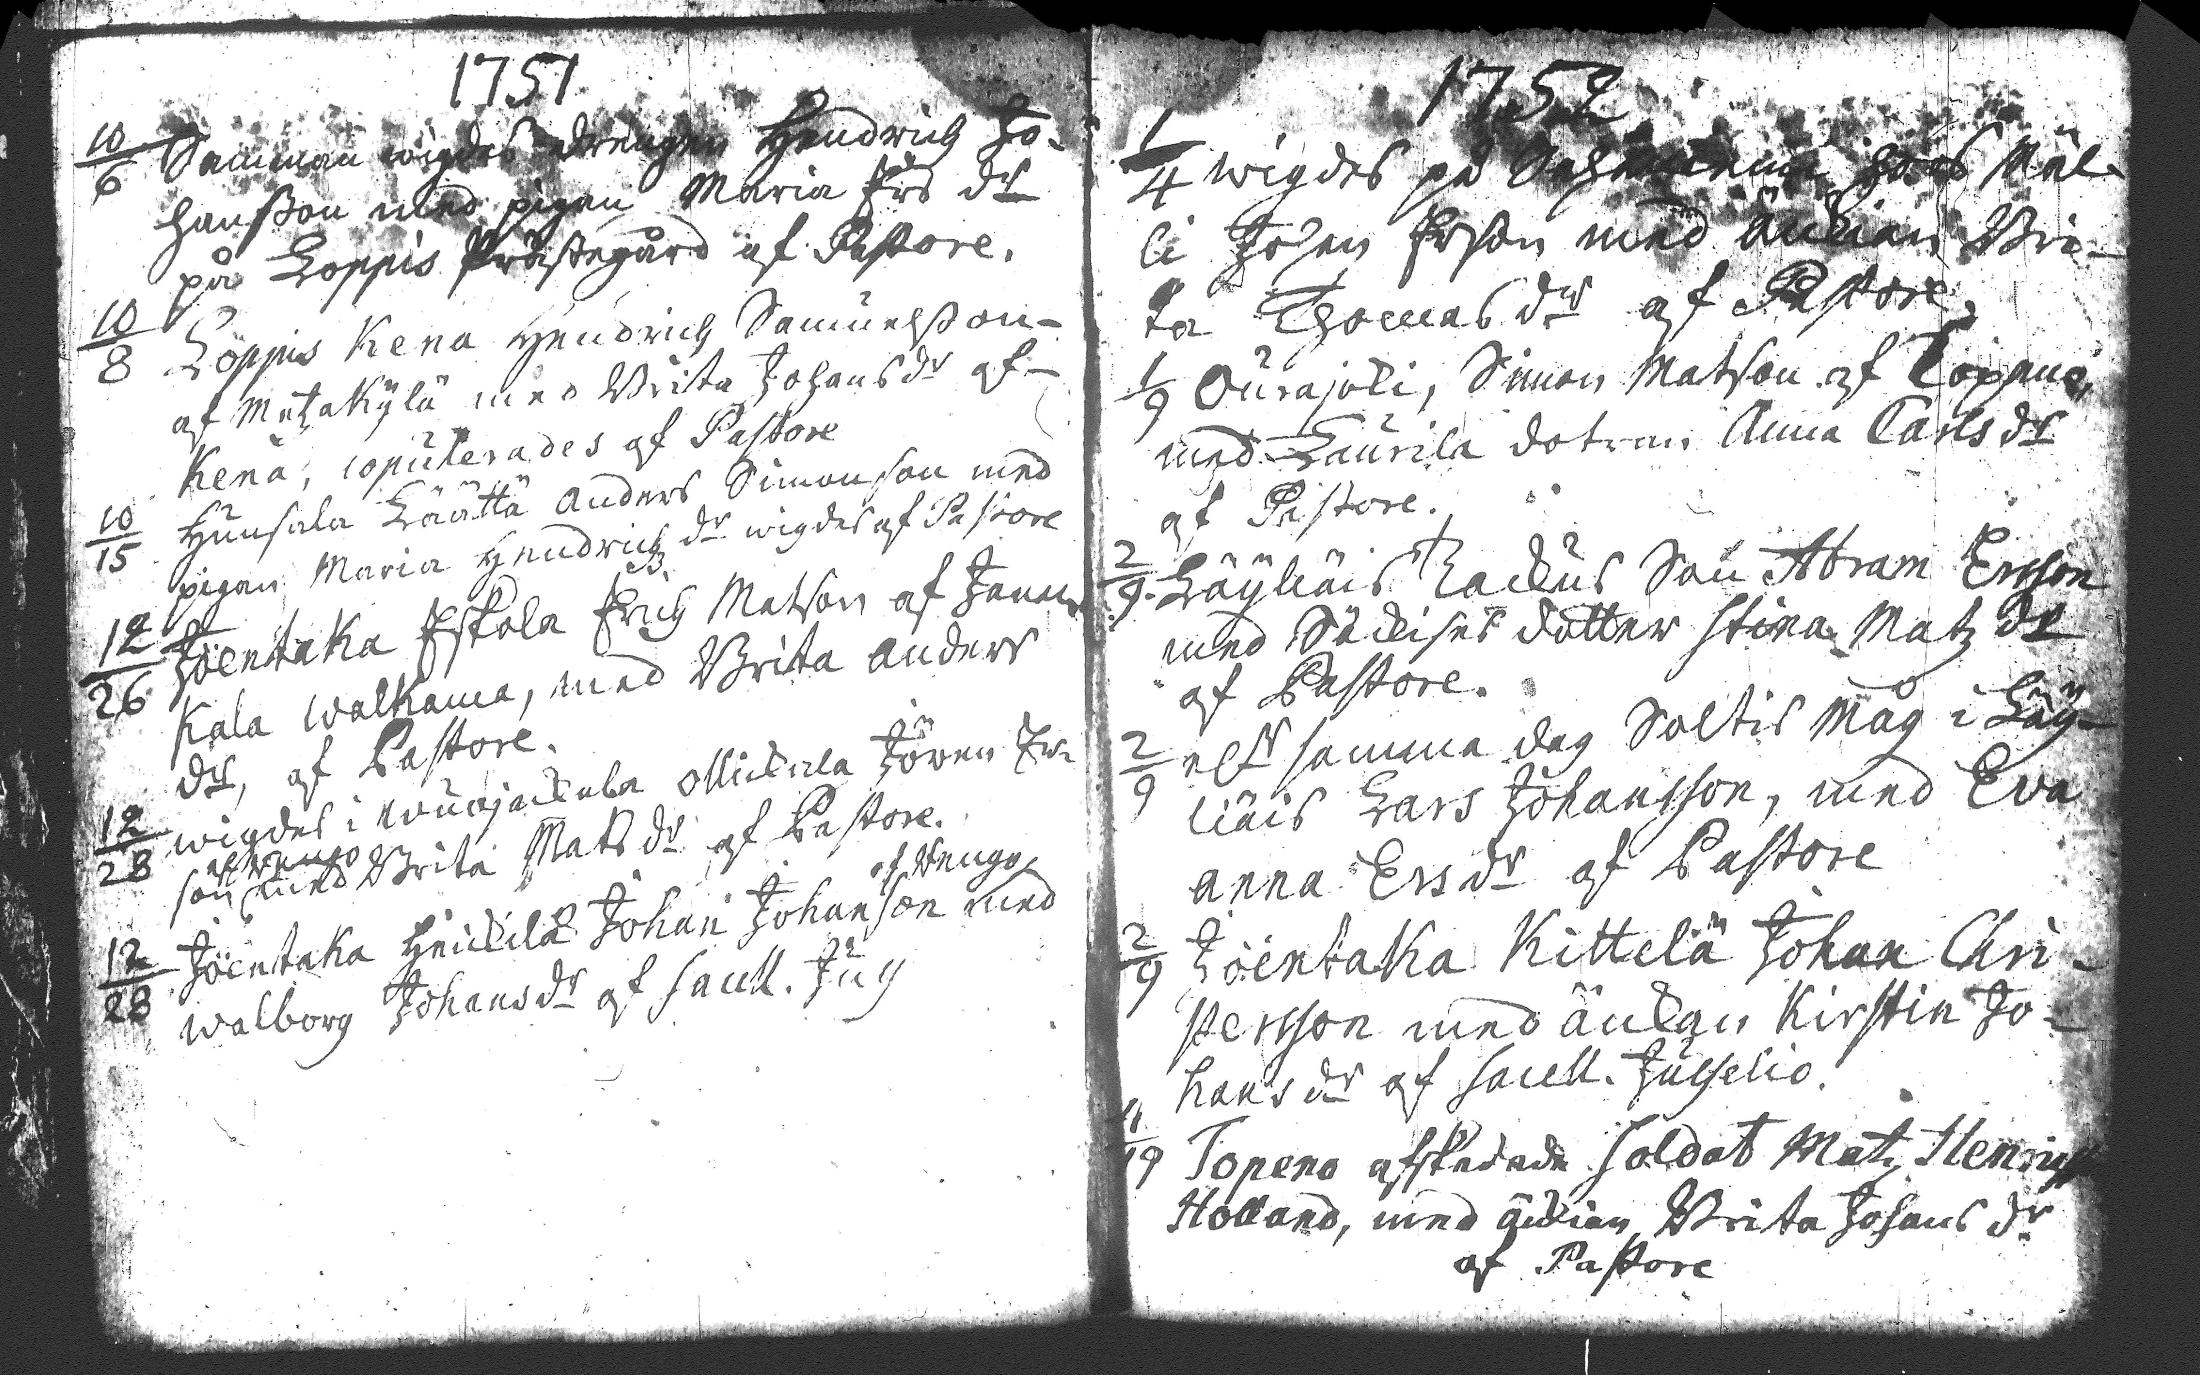 1751
10/6 Samman wigdes drengen Hendrich Jo-
hansson med pigan Maria Ers dr
på Loppis Prästegård af Pastore.
10/8 Loppis Kena Hendrich Samuelsson
af Metzakylä med Brita Johans dr af
Kena, copulerades af Pastore
10/15 Hunsala Läättä Anders Simonson med
pigan Maria Hendrichs dr wigdes af Pastore
12/26 Jöentaka Eskola Erich Matson af
Kala Walkama, med Brita Anders
dr, af Pastore.
12/28 wigdes i Jören Er
son med Brita Mats dr af Pastore.
12/28 Jöentaka Heickilä Johan Johanson med
Walborg Johans dr af Sacell. Jug
1752
1/4 wigdes på Mäl-
li Johan Erson med änkian Bri-
ta Thomas dr af Pastore.
1/9 Ourajoki, Simon Matson af Toipane,
med Laurila dotren Anna Carls dr
af Pastore.
2/9. Löyliäis Backus Son Abram Ersson
med dotter Stina Matz dr
af Pastore.
2/9 samma dag Soltis Måg i Löy-
liäis Lars Johansson, med Eva
Anna Ers dr af Pastore
2/9 Jöentaka Kittelä Johan Chri-
stersson med änkan Kirstin Jo-
hans dr af Sacell. Juselio.
11/19 Topeno afskedade Soldat Matz Henrichss
Holland, med änkian Brita Johans dr
af Pastore